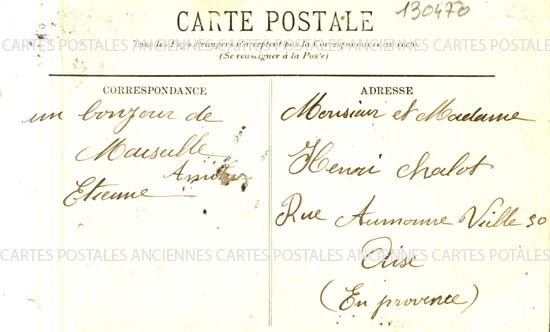 CARTE POSTALE
130470
Tous les Pays étrangers n'acceptent pas la Correspondance au recto.
(Se renseigner à la Poste)
CARTES POSTALES ANCIENNES CARTES POSTALES ANCIENNES CARTES POSTALES
CORRESPONDANCE
un bonjour de
Marseille
Amitiés
Etienne
ADRESSE
Monsieur et Madame
Henri Chalot
Rue Aumoune Vieille 30
Aise
(En provence)
CARTES POSTALES ANCIENNES CARTES POSTALES ANCIENNES CARTES POSTALES